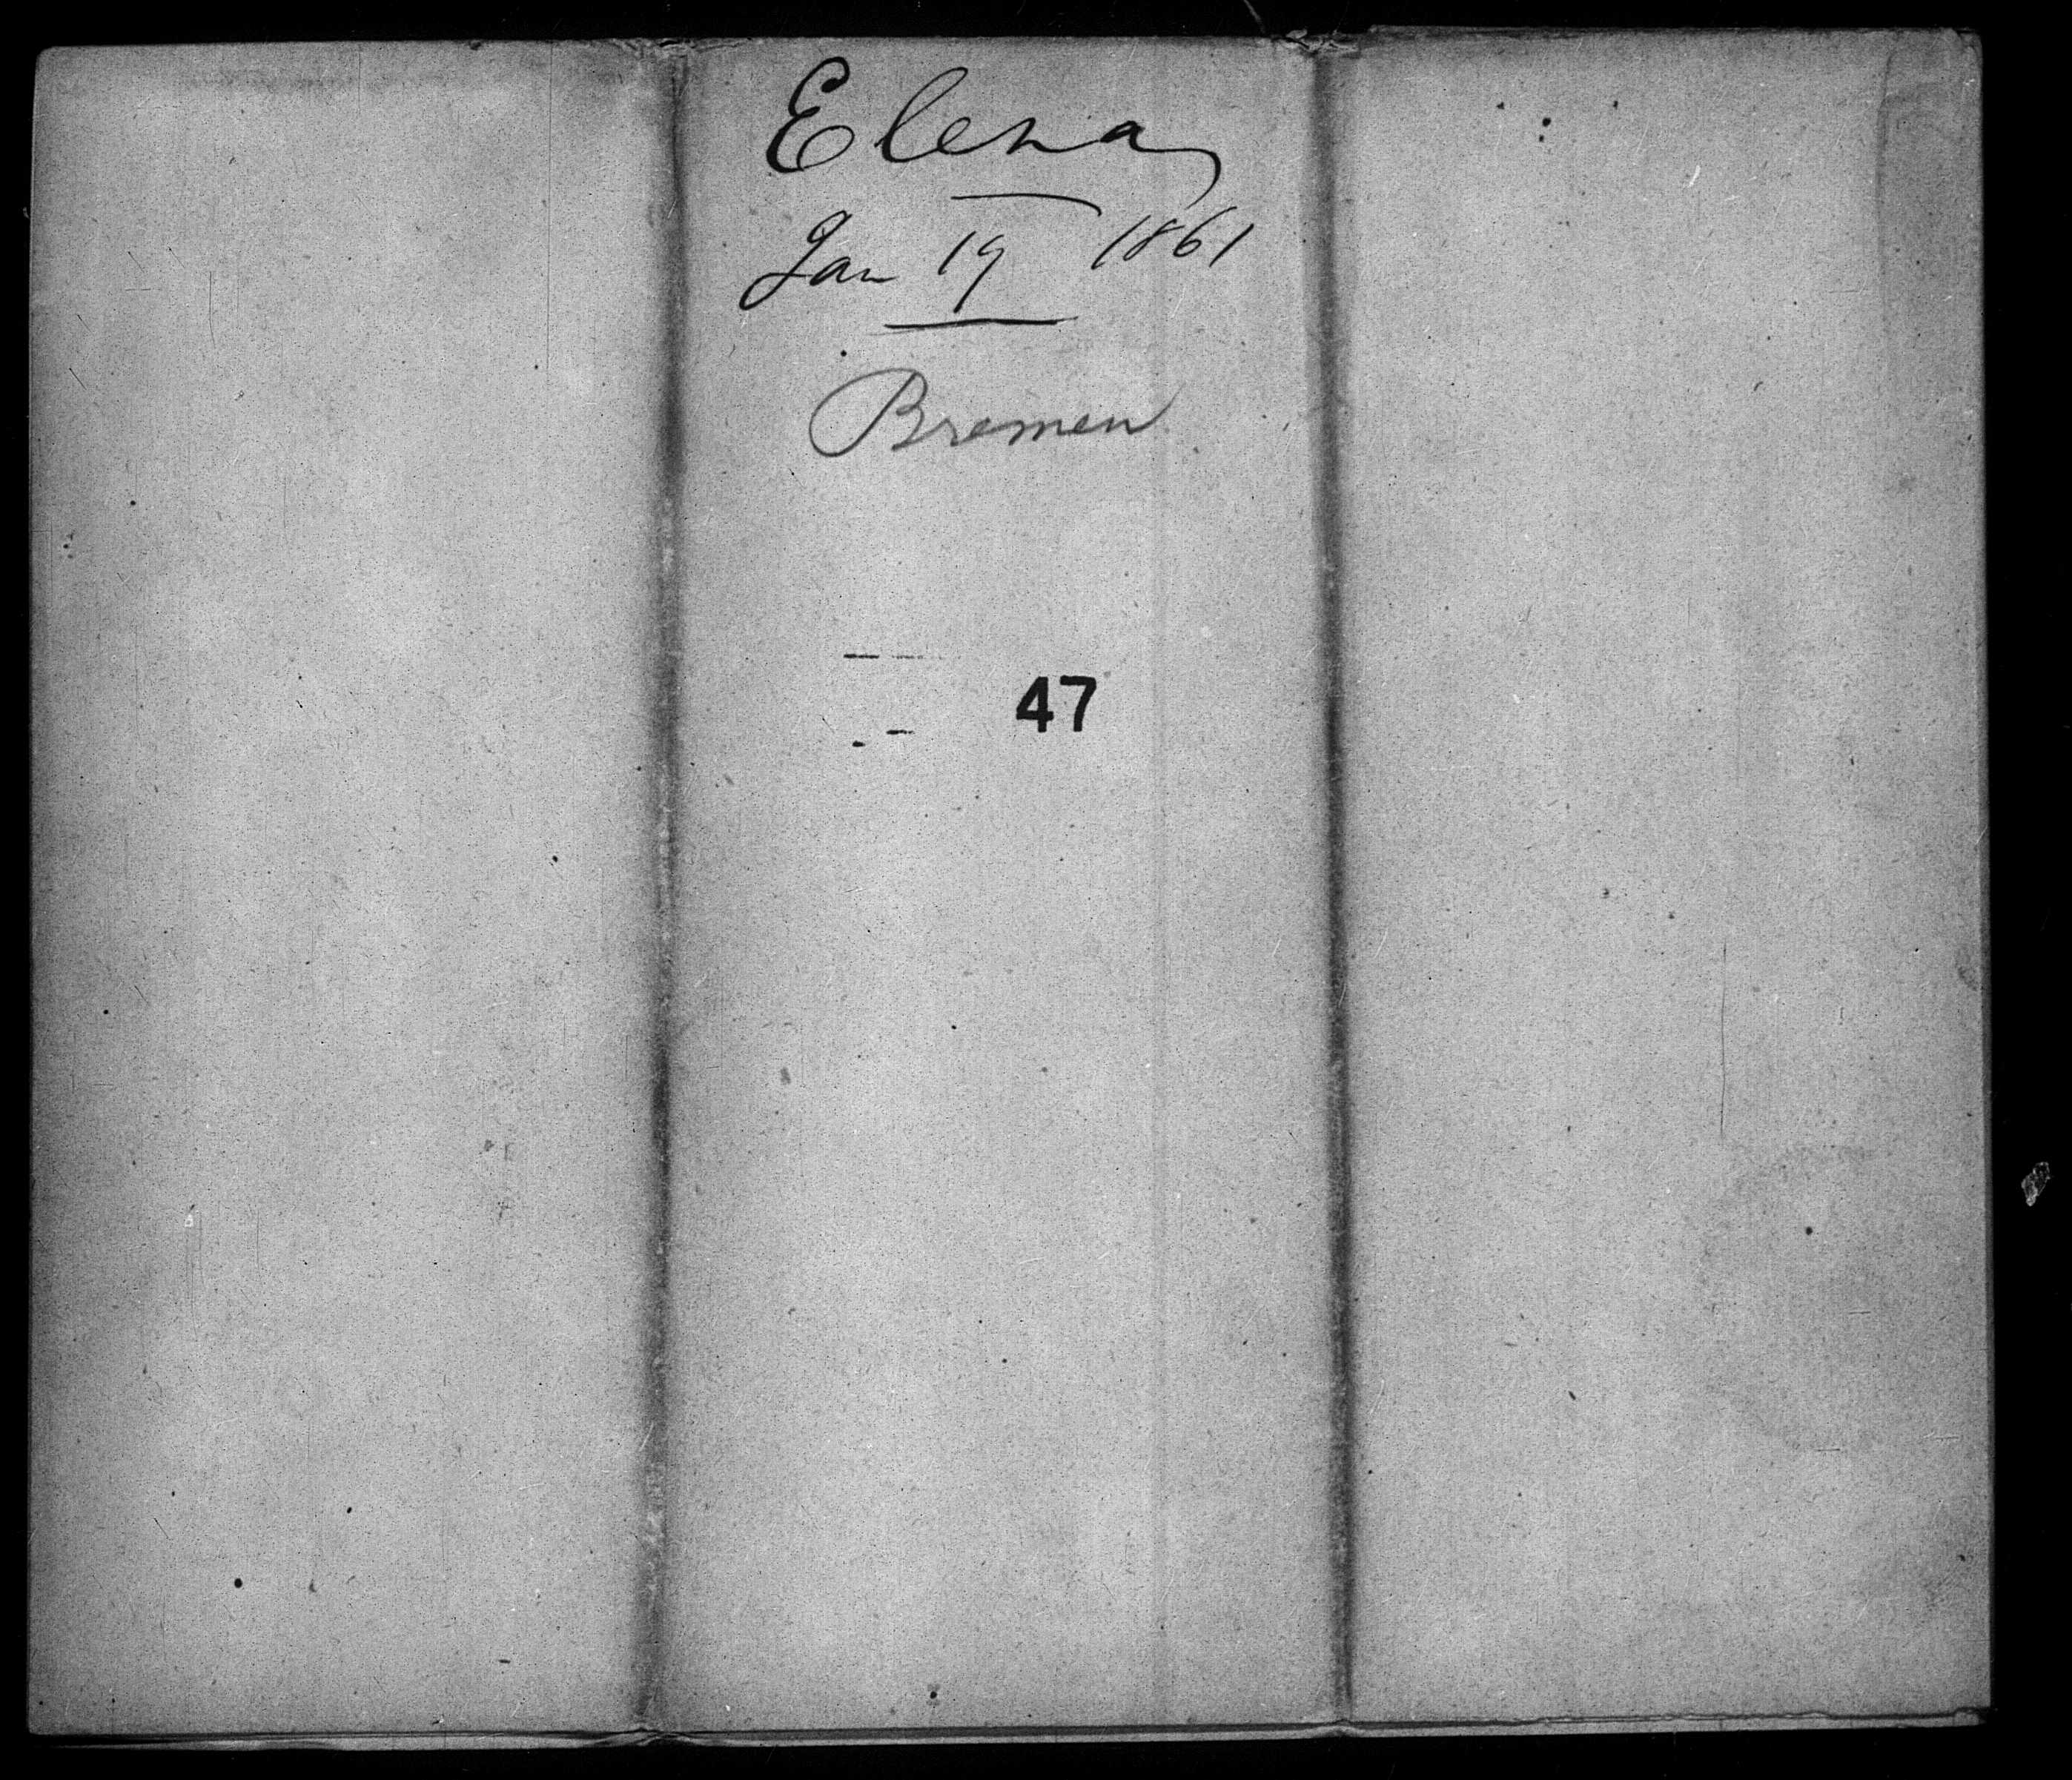 Elena
Jan 19 1861
Bremen
47